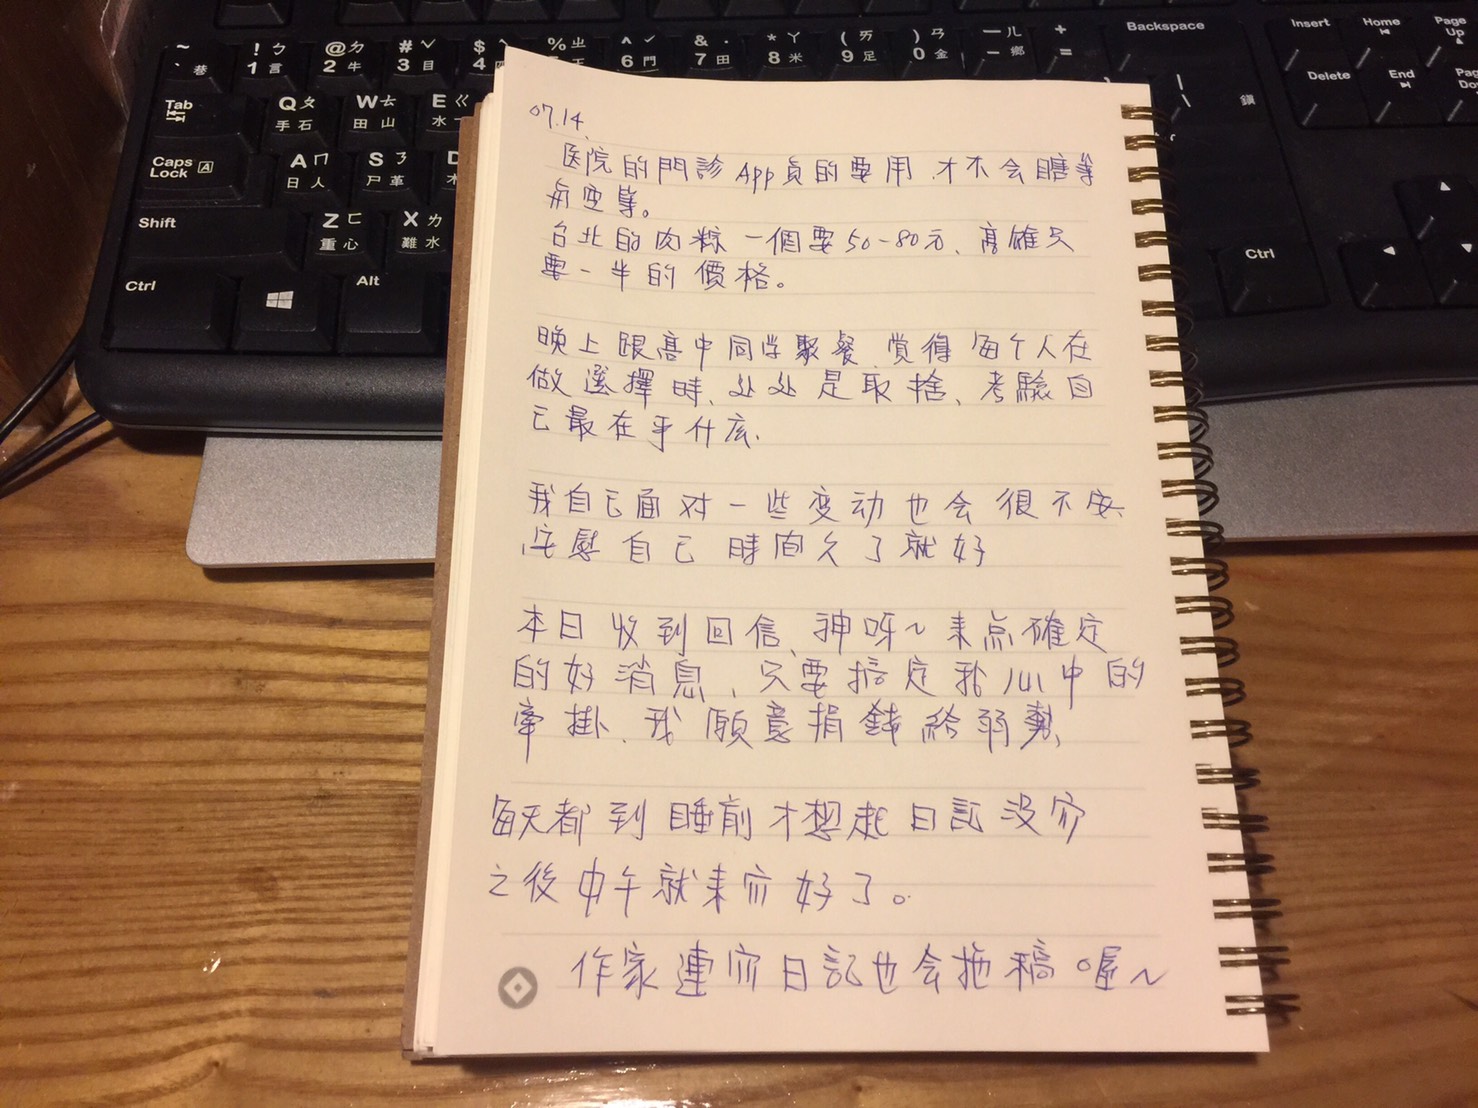 ~ ` 巷
! ㄅ 1 言
@ ㄉ 2 牛
# ˇ 3 目
$ ˋ 4
% ㄓ
^ ˊ 6 門
& ˙ 7 田
* ㄚ 8 米
( ㄞ 9 足
) ㄢ 0 金
— ㄦ - 鄉
+ =
Backspace
Insert
Home
Page Up
Tab
Q ㄆ 手 石
W ㄊ 田 山
E ㄍ 水
| \ 鎖
Delete
End
Caps Lock A
A ㄇ 日 人
S ㄋ 尸 革
Shift
Z ㄈ 重 心
X ㄌ 難 水
Ctrl
Alt
Ctrl
07.14
医院的門診App真的要用,才不会瞎等
空等。
台北的肉粽一個要50-80元、高雄只
要一半的價格。
晚上跟高中同学聚餐、覚得每个人在
做選擇時、处处是取捨、考驗自
己最在乎什庅、
我自己面对一些变动也会很不安、
安慰自己時间久了就好
本日收到回信、神呀~来点確定
的好消息、只要搞定我心中的
牽掛、我願意捐錢給弱勢、
每天都到睡前才想起日記没寫
之後中午就来寫好了。
作家連寫日記也会拖稿喔~